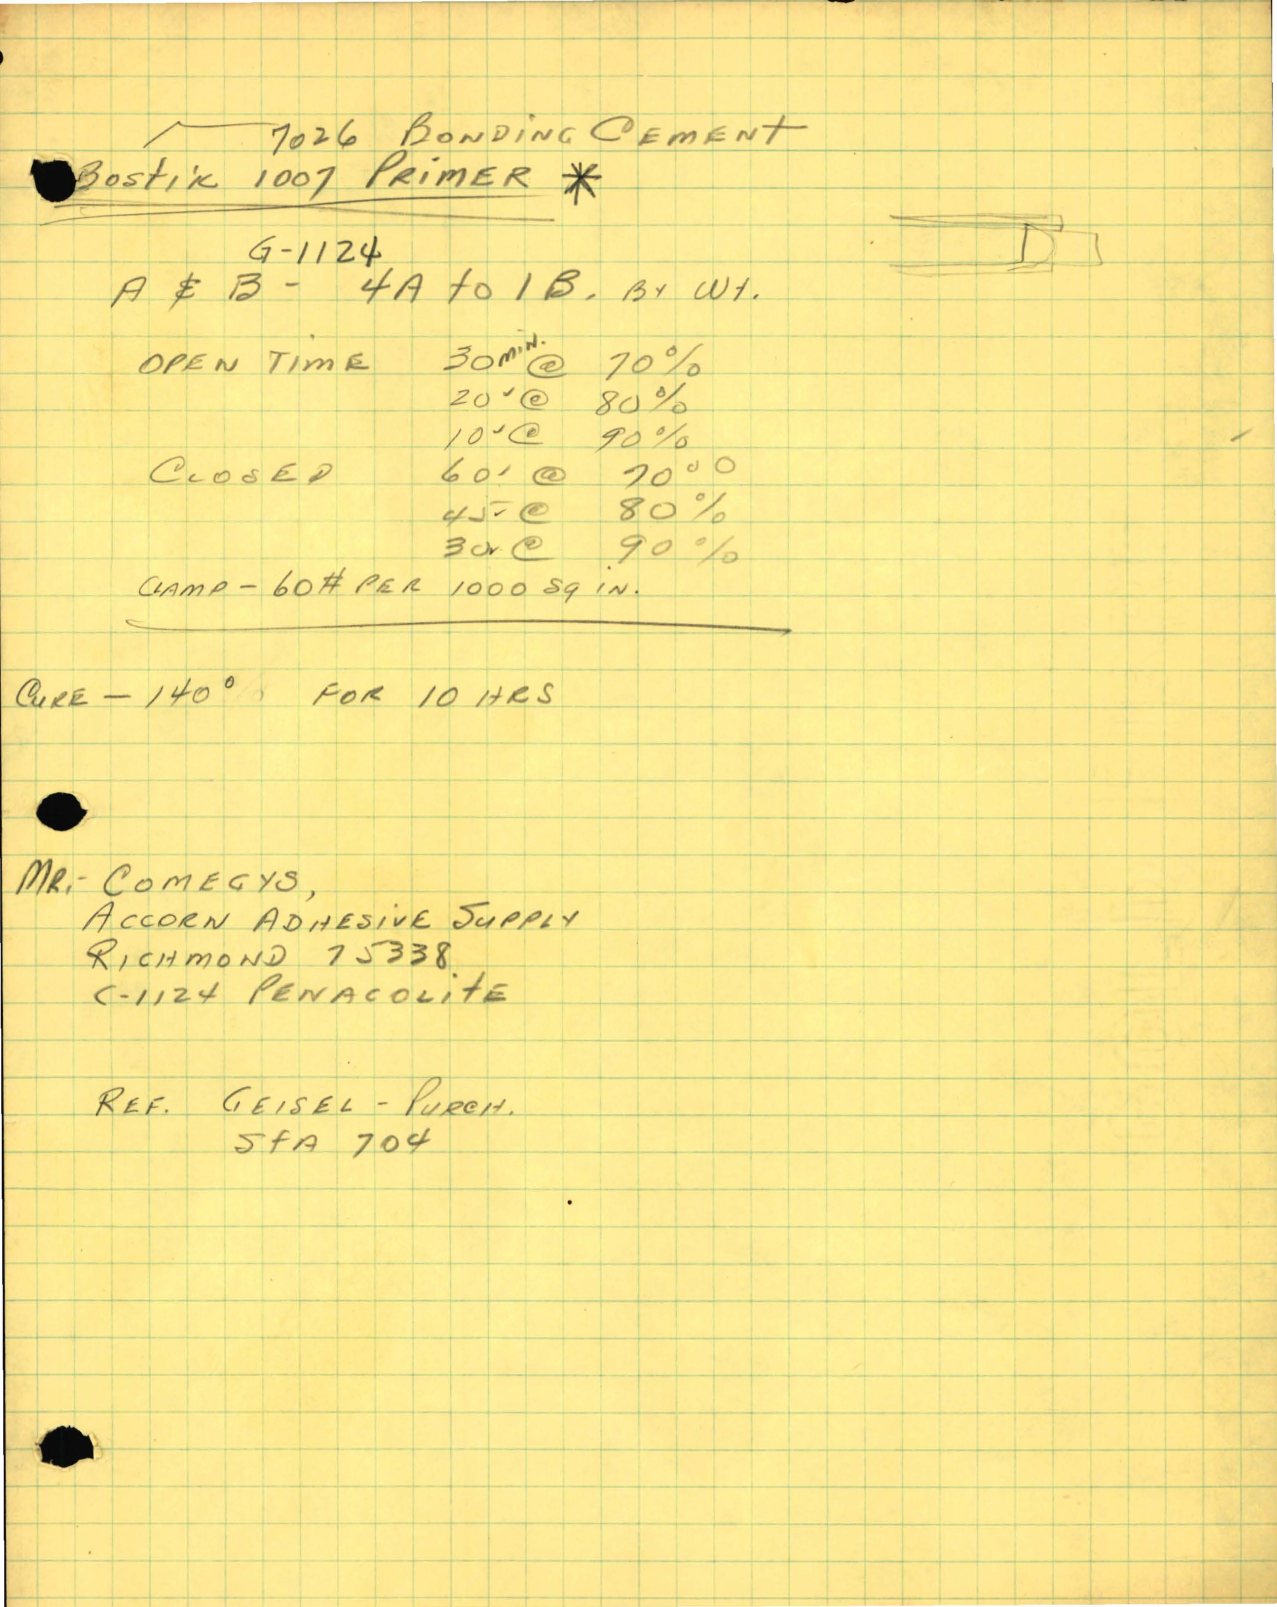 7026 BONDING CEMENT
Bostik 1007 PRIMER *
G-1124
A & B - 4A to 1B. BY Wt.
OPEN TIME 30 MIN. @ 70%
20' @ 80%
10' @ 90%
CLOSED 60' @ 70°0
45 @ 80%
30 @ 90%
CLAMP - 60# PER 1000 SQ IN.
CURE - 140° FOR 10 HRS
MR. COMEGYS,
ACCORN ADHESIVE SUPPLY
RICHMOND 75338
C-1124 PENACOLITE
REF. GEISEL - PURCH.
STA 704